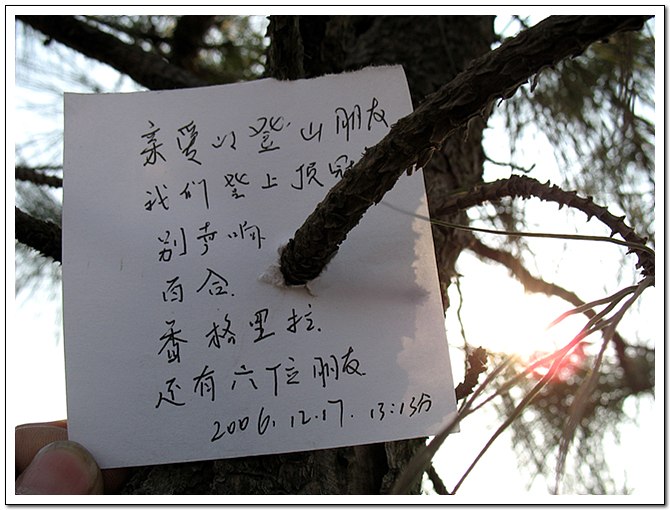 亲爱以登山朋友
我们登上顶
别
百合
香格里拉
还有六位朋友
2006.12.17. 13:13分